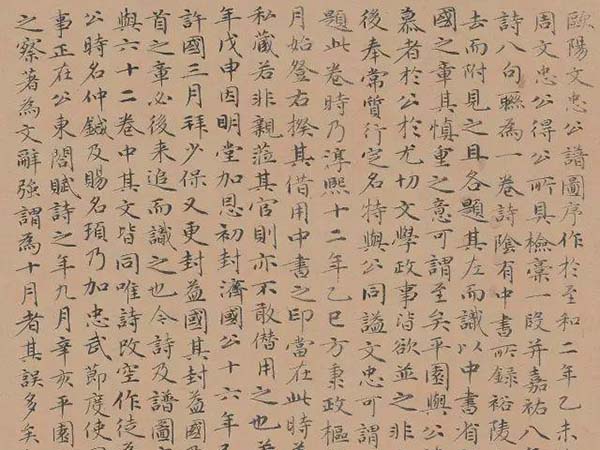 歐陽文忠公譜圖序作於至和二年乙未
周文忠公得公所具檢藁一段并嘉祐八
詩八句聯為一卷詩陰有中書所錄裕陵
去而附見之且各題其左而識以中書省
國之章其慎重之意可謂至矣平園與公
慕者於公於尤切文學政事皆欲並之非
後奉常質行定名特與公同謚文忠可謂
題此卷時乃淳熙十二年乙巳方秉政樞
月始登右揆其借用中書之印當在此時
私藏若非親蒞其官則亦不敢僭用之也
年戊申因明堂加恩初封濟國公十六年
許國三月拜少保又更封益國其封益國
首之章必後來追而識之也今詩及譜圖
與六十二卷中其文皆同唯詩改空作徒
公時名仲鍼及賜名頊乃加忠武節度使
事正在公東閤賦詩之年九月辛亥平園
之察著為文辭強謂為十月者其誤多矣